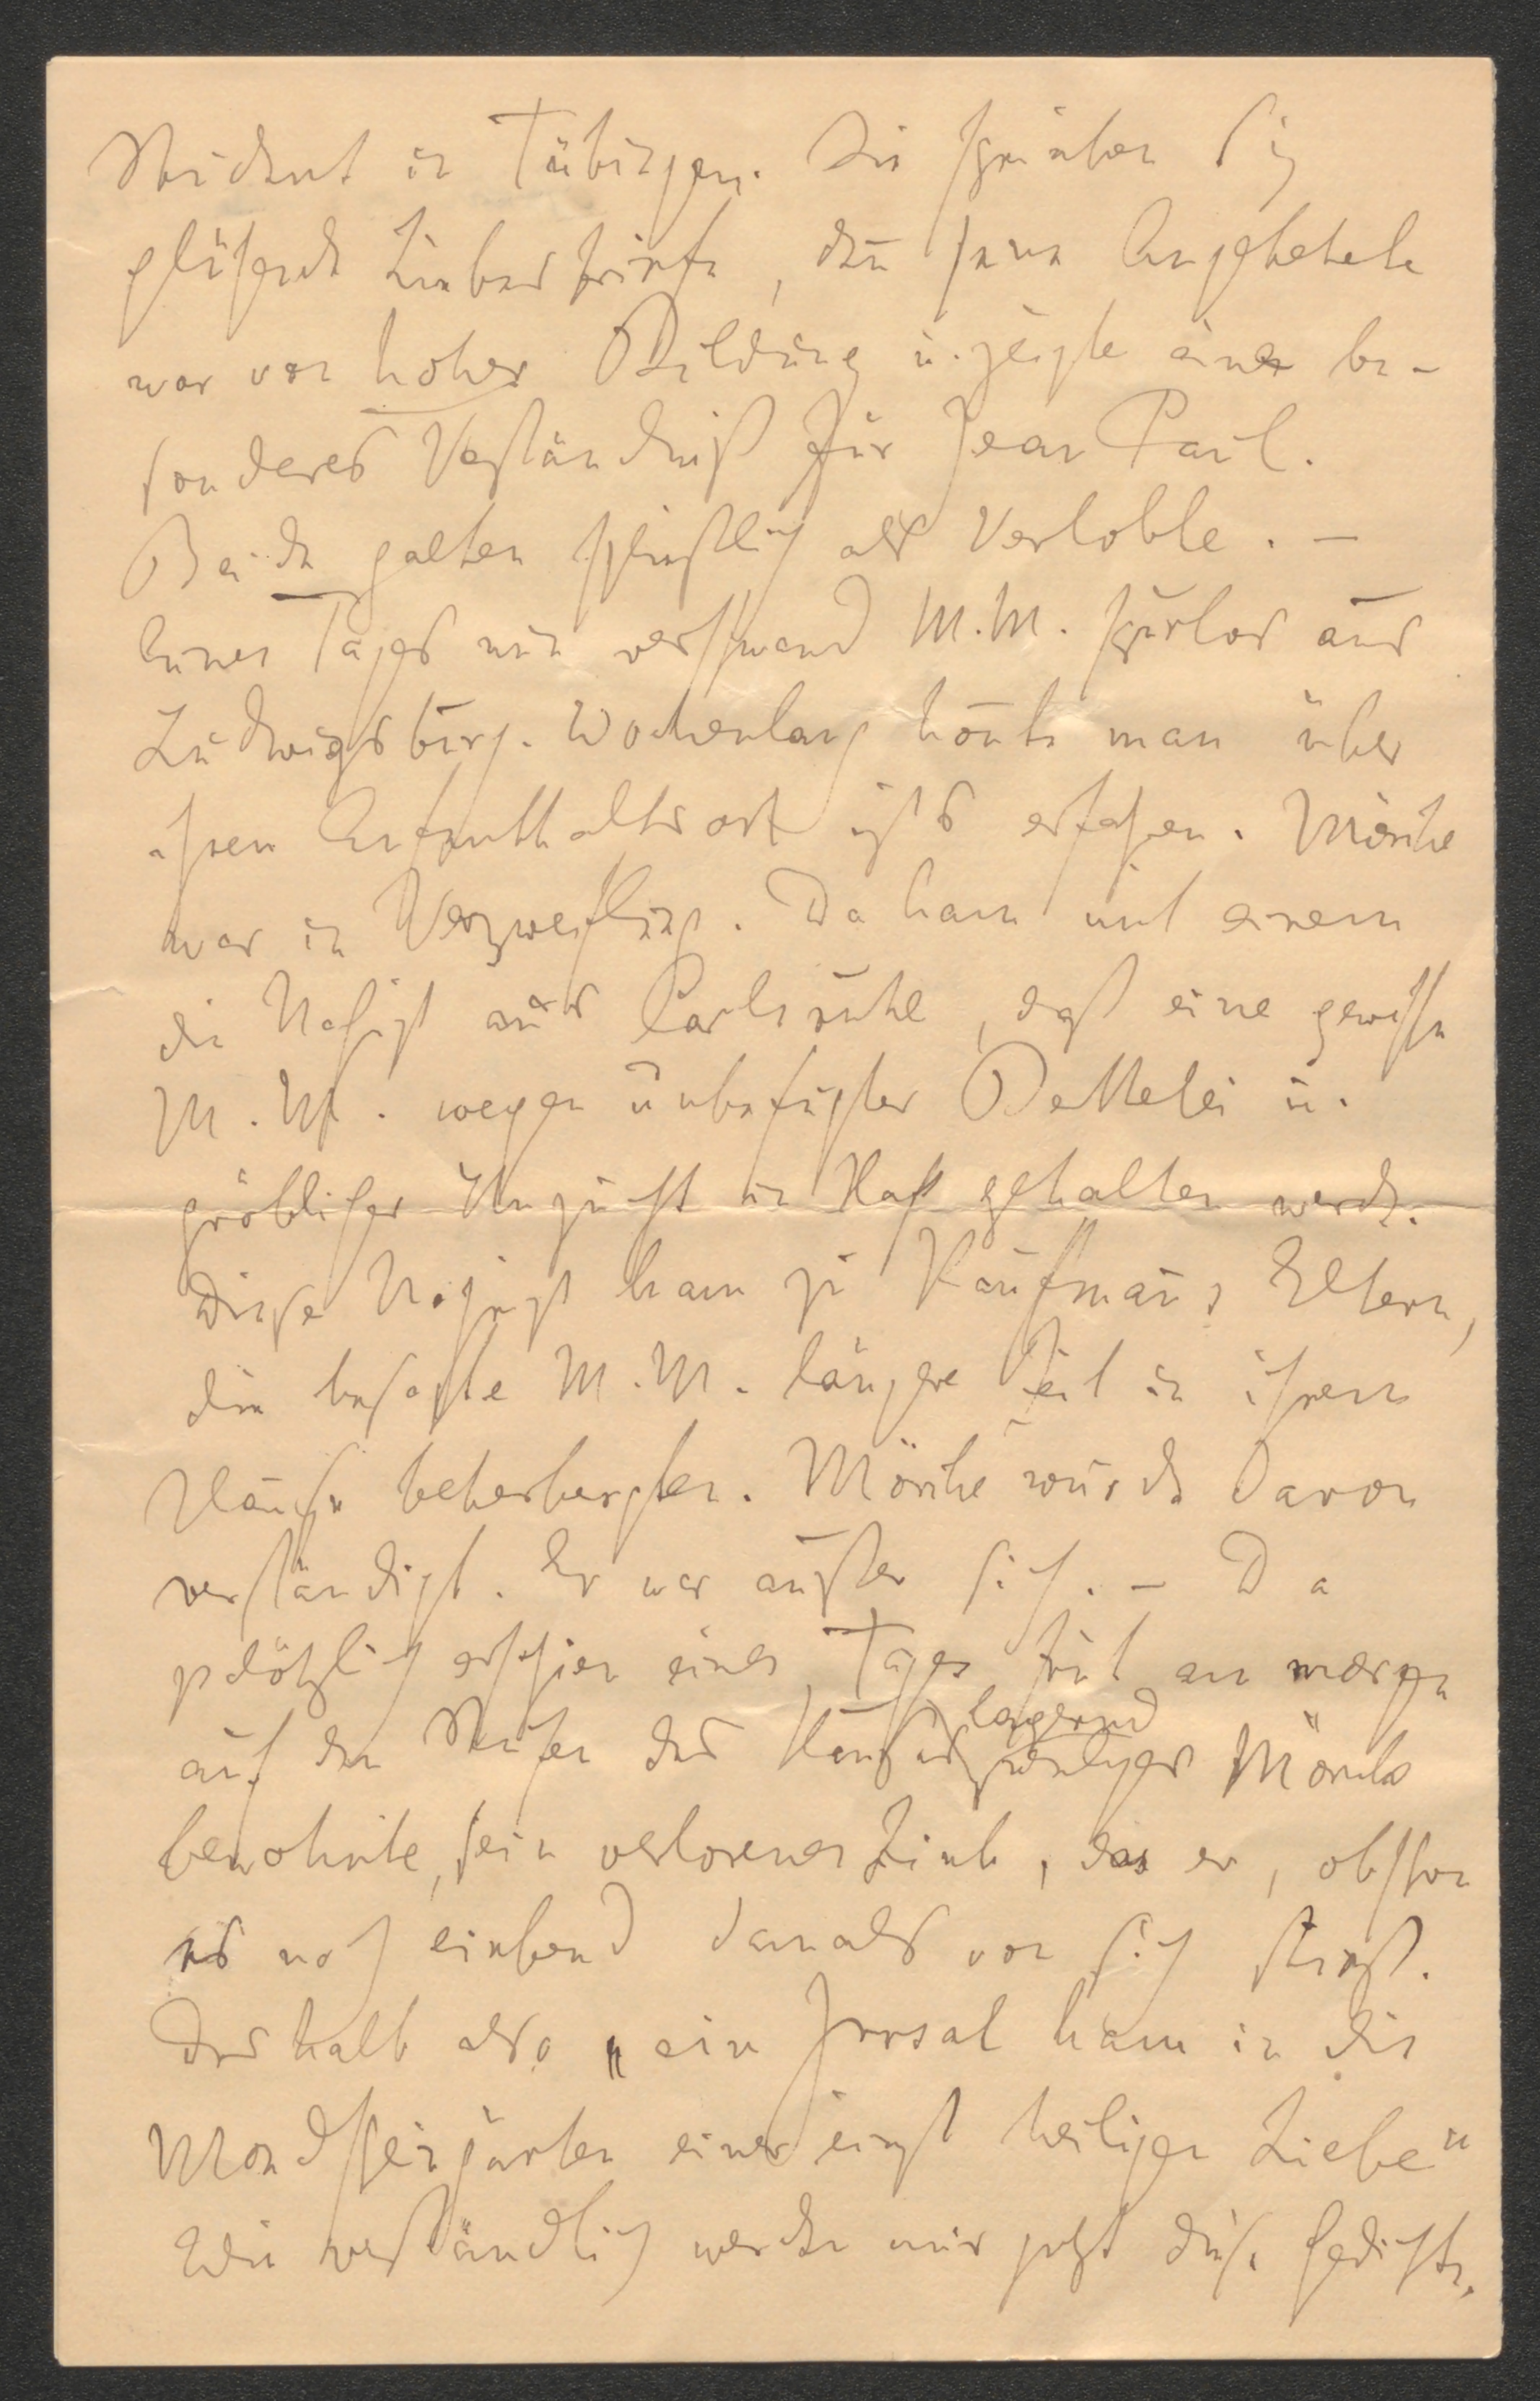 Student in Tübingen. Sie schrieben sich
glühende Liebesbriefe, den̄ seine Angebetete
war von hoher Bildung u. zeigte ein be-
sonderes Verständniß für Jean Paul.
Beide galten schließlich als Verlobte. –
Eines Tages nun verschwand M. M. spurlos aus
Ludwigsburg. Wochenlang kon̄te man über
ihren Aufenthaltsort nichts erfahren. Mörike
war in Verzweiflung. Da kam mit einem
die Nachricht aus Carlsruhe, daß eine gewisse
M. M. wegen unbefugter Bettelei u.
gröblicher Unzucht in Haft gehalten werde.
Diese Nachricht kam zu Kaufman̄s Eltern,
die besagte M. M. längere Zeit in ihrem
Hause beherbergten. Mörike wurde davon
verständigt. Er war außer sich. – Da
plötzlich erschien eines Tages früh am morgen
auf den Stufen des Hauses lagernd welches Mörike
bewohnte, sein verlorenes Lieb, das er, obschon
es noch liebend damals von sich stieß.
Deshalb also „ein Irrsal kam in die
Mondscheingärten einer einst heiligen Liebe“
Wie verständlich werden mir jetzt diese Gedichte.